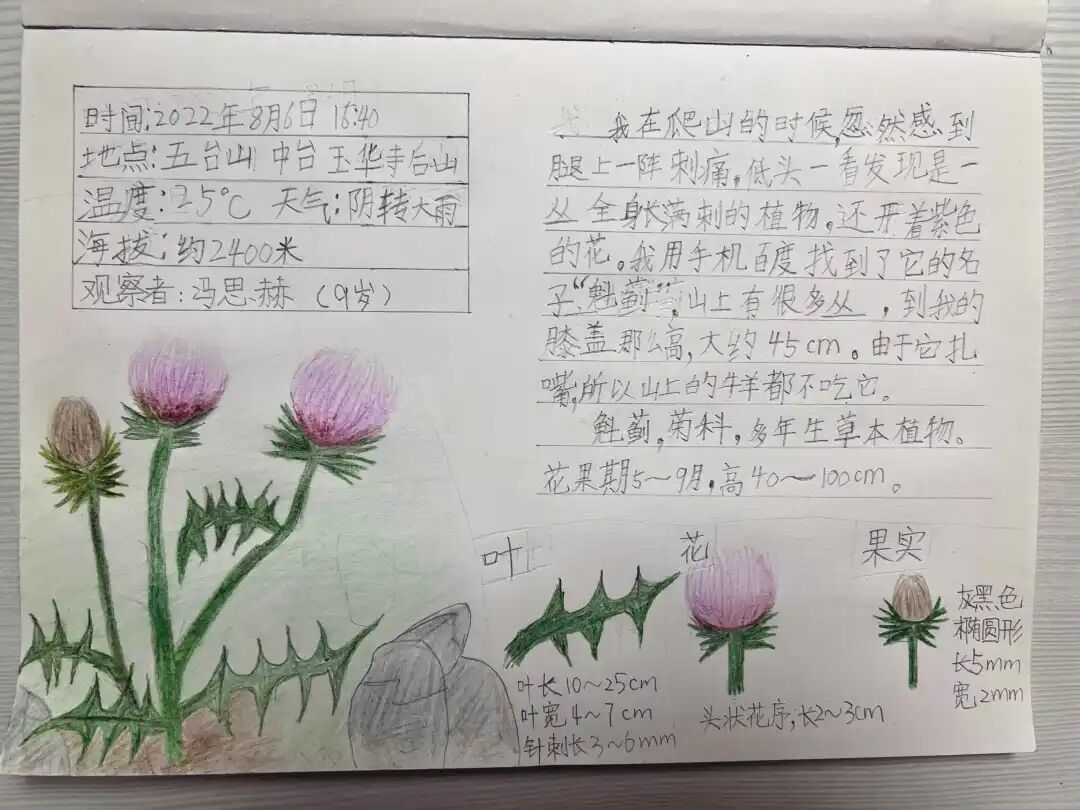 时间:2022年8月6日 16:40
地点:五台山 中台 玉华寺后山
温度:25℃ 天气:阴转大雨
海拔:约2400米
观察者:冯思赫(9岁)
我在爬山的时候,忽然感到
腿上一阵刺痛,低头一看发现是一
丛全身长满刺的植物,还开着紫色
的花。我用手机百度找到了它的名
子:“魁蓟”,山上有很多丛,到我的
膝盖那么高,大约45cm。由于它扎
嘴,所以山上的牛羊都不吃它。
魁蓟,菊科,多年生草本植物。
花果期5~9月,高40~100cm。
叶
叶长10~25cm
叶宽4~7cm
针刺长3~6mm
花
头状花序,长2~3cm
果实
灰黑色
椭圆形
长5mm
宽2mm